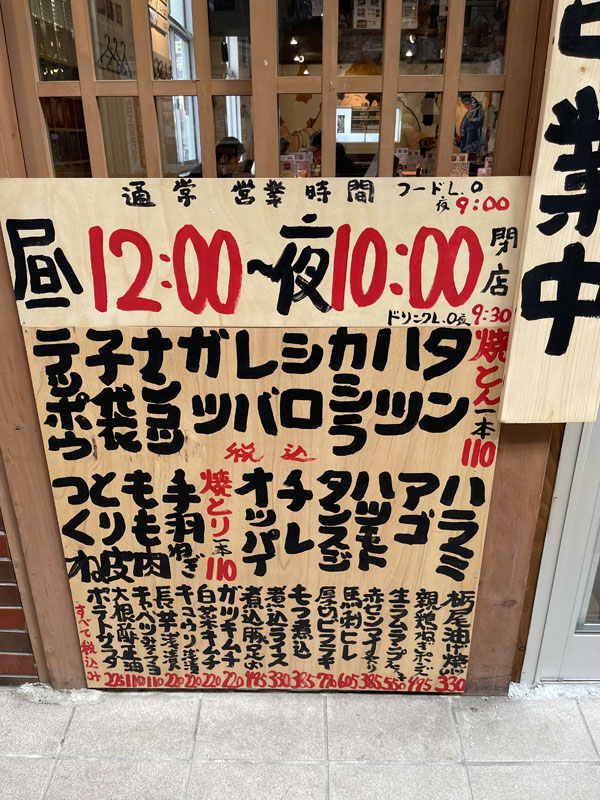 通常営業時間 フードL.O
夜9:00
昼12:00~夜10:00閉店
ドリンクL.O夜9:30
業中
焼とん一本110
タン
ハツ
カシラ
シロ
レバ
ガツ
ナンコツ
子袋
テッポウ
税込
ハラミ
アゴ
ハツモト
タンスジ
チレ
オッパイ
焼とり一本110
手羽
ねぎ
もも肉
とり皮
つくね
栃尾油げ焼 330
495
550
385
馬刺ヒレ 605
770
もつ煮込 385
煮込ライス 330
煮込豚足 495
ガツキムチ 220
白菜キムチ 220
キュウリ浅漬 220
長芋浅漬 220
キャベツ 110
大根 110
ポテトサラダ 275
すべて税込み